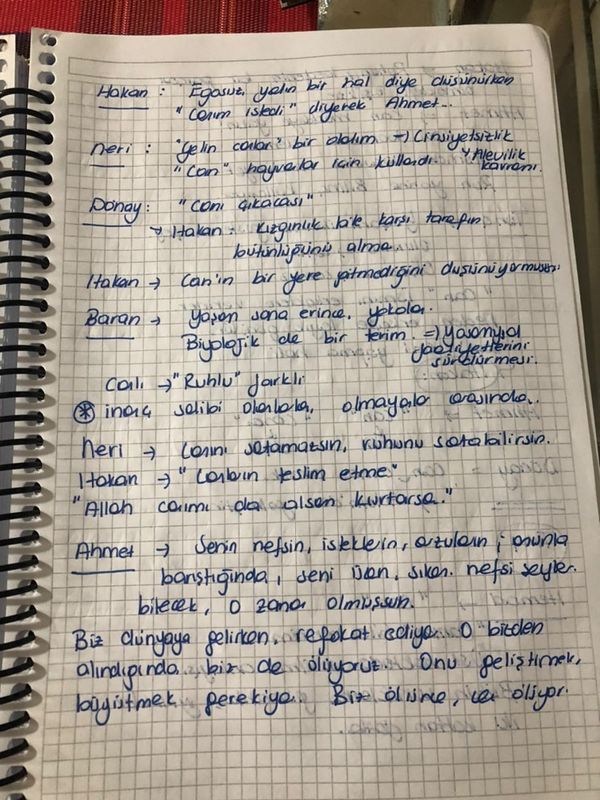 Hakan : Egosuz, yalın bir hal diye düşünürken
"Canım istedi" diyerek Ahmet...
Neri : "Gelin canlar" bir olalım → Cinsiyetsizlik
"Can" hayvanlar için kullandı. → Alevilik kavramı.
Donay : "Canı çıkacası"
→ Hakan - Kızgınlık bile karşı tarafın
bütünlüğünü alma
Hakan → Can'ın bir yere gitmediğini düşünüyormuşum.
Baran → Yaşam sona erince, yokolar.
Biyolojik de bir terim. ⇒ yaşamsal
faaliyetlerini
sürdürmesi.
Canlı → "Ruhlu" farklı
* inanç sahibi olanlarla, olmayanlar arasında..
Neri → Canını satamazsın, ruhunu satabilirsin.
Hakan → "Canların teslim etme"
"Allah canımı da alsan kurtarsa."
Ahmet → Senin nefsin, isteklerin, arzuların ; onunla
barıştığında, seni üzen, sıkan nefsi şeyler
bitecek, o zaman olmuşsun."
Biz dünyaya gelirken, refakat ediyor. O bizden
alındığında biz de ölüyoruz. Onu geliştirmek,
büyütmek gerekiyor. Biz ölünce, can ölüyor.